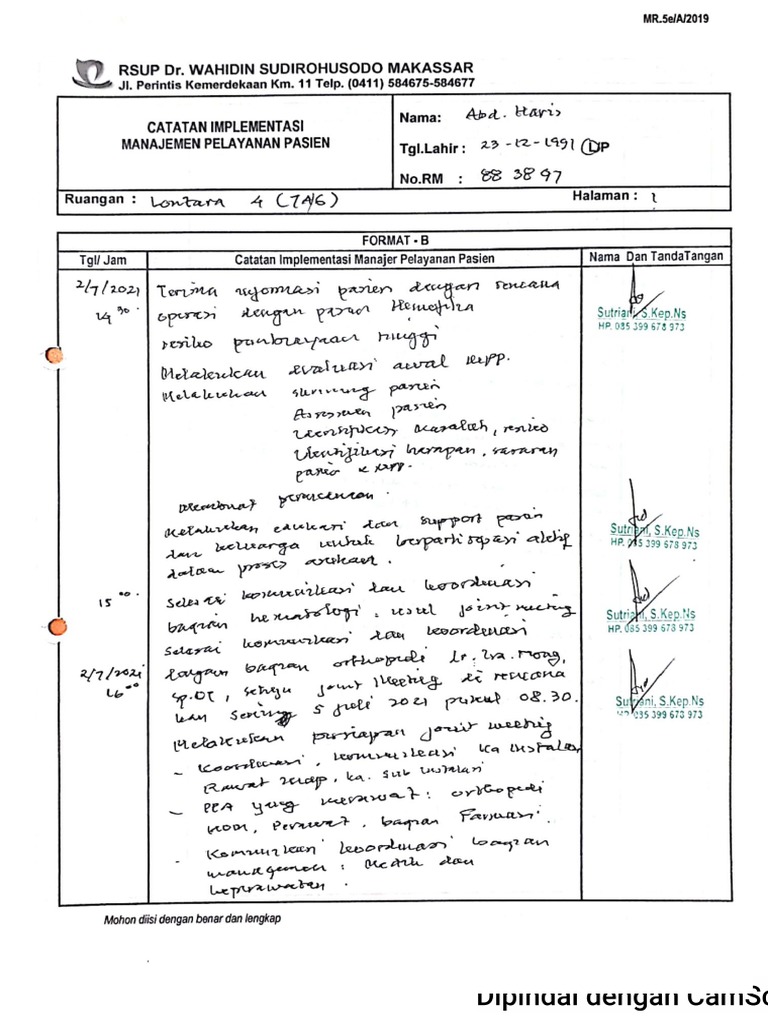 MR.5e/A/2019
RSUP Dr. WAHIDIN SUDIROHUSODO MAKASSAR
Jl. Perintis Kemerdekaan Km. 11 Telp. (0411) 584675-584677
CATATAN IMPLEMENTASI
MANAJEMEN PELAYANAN PASIEN
Nama: Abd. Haris
Tgl.Lahir : 23-12-1991 L/P
No.RM : 88 38 97
Ruangan : Lontara 4 (
Halaman : 1
FORMAT - B
Tgl/ Jam
Catatan Implementasi Manajer Pelayanan Pasien
Nama Dan TandaTangan
2/7/2021
14 30
Terima informasi pasien dengan rencana
operasi dengan pasien Hemofilia
resiko pembiayaan tinggi
Melakukan evaluasi awal MPP.
Melakukan skrining pasien
Assesmen pasien
Identifikasi masalah, resiko
Identifikasi harapan, sasaran
pasien & MPP.
Membuat perencanaan.
Melakukan edukasi dan support pasien
dan keluarga untuk berpartisipasi aktif
dalam proses asuhan.
Sutriani, S.Kep.Ns
HP. 085 399 678 973
Sutriani, S.Kep.Ns
HP. 085 399 678 973
15 00
Selesai komunikasi dan koordinasi
bagian hematologi, usul joint meeting
Selesai komunikasi dan koordinasi
Sutriani, S.Kep.Ns
HP. 085 399 678 973
2/7/2021
16 00
dengan bagian orthopedi dr.
Sp.OT, setuju joint meeting di rencana
kan Senin 5 Juli 2021 pukul 08.30.
Sutriani, S.Kep.Ns
HP. 085 399 678 973
Melakukan persiapan joint meeting
- Koordinasi, komunikasi ka instalasi
Rawat inap, ka. sub instalasi
- PPA yang merawat: orthopedi
HOM, Perawat, bagian Farmasi.
- Komunikasi koordinasi bagian
management : Medik dan
keperawatan.
Mohon diisi dengan benar dan lengkap
Dipindai dengan CamSc